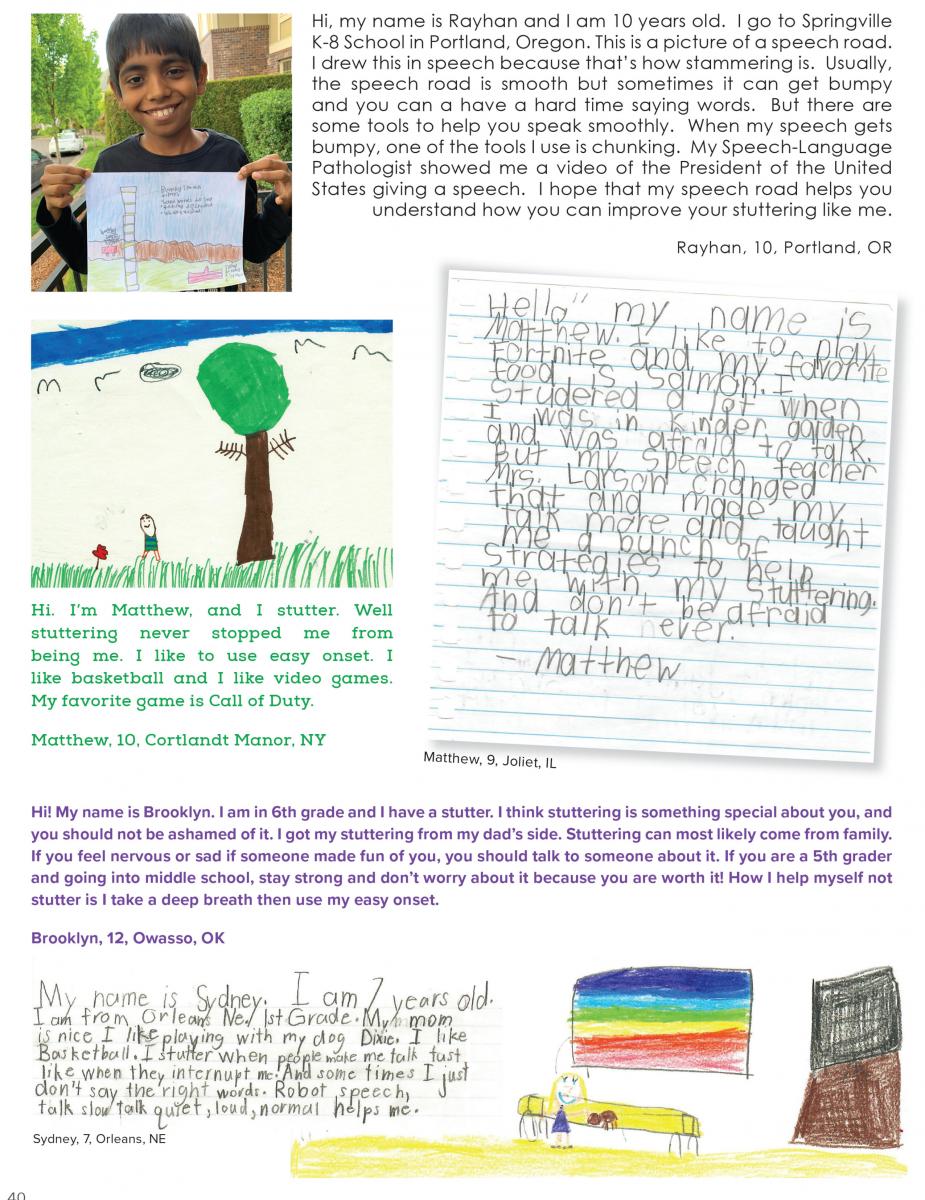 Hi, my name is Rayhan and I am 10 years old. I go to Springville
K-8 School in Portland, Oregon. This is a picture of a speech road.
I drew this in speech because that's how stammering is. Usually,
the speech road is smooth but sometimes it can get bumpy
and you can a have a hard time saying words. But there are
some tools to help you speak smoothly. When my speech gets
bumpy, one of the tools I use is chunking. My Speech-Language
Pathologist showed me a video of the President of the United
States giving a speech. I hope that my speech road helps you
understand how you can improve your stuttering like me.
Rayhan, 10, Portland, OR
Hello" my name is
Matthew. I like to play
Fortnite and my favorite
food is Salmon. I
Studered a lot when
I was in kinder garden
and was afraid to talk.
But my speech teacher
Mrs. Larson changed
that and made my
talk more and taught
me a bunch of
strategies to help
me with my stuttering.
And don't be afraid
to talk ever.
- Matthew
Matthew, 9, Joliet, IL
Hi. I'm Matthew, and I stutter. Well
stuttering never stopped me from
being me. I like to use easy onset. I
like basketball and I like video games.
My favorite game is Call of Duty.
Matthew, 10, Cortlandt Manor, NY
Hi! My name is Brooklyn. I am in 6th grade and I have a stutter. I think stuttering is something special about you, and
you should not be ashamed of it. I got my stuttering from my dad's side. Stuttering can most likely come from family.
If you feel nervous or sad if someone made fun of you, you should talk to someone about it. If you are a 5th grader
and going into middle school, stay strong and don't worry about it because you are worth it! How I help myself not
stutter is I take a deep breath then use my easy onset.
Brooklyn, 12, Owasso, OK
My name is Sydney. I am 7 years old.
I am from Orleans Ne./ 1st Grade. My mom
is nice I like playing with my dog Dixie. I like
Basketball. I stutter when people make me talk fast,
like when they internupt me. And some times I just
don't say the right words. Robot speech,
talk slow talk quiet, loud, normal helps me.
Sydney, 7, Orleans, NE
40